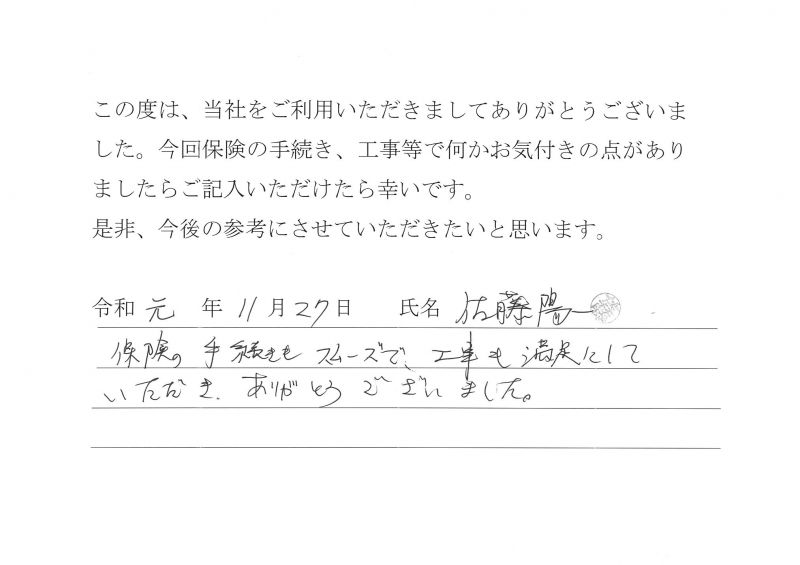 この度は、当社をご利用いただきましてありがとうございま
した。今回保険の手続き、工事等で何かお気付きの点があり
ましたらご記入いただけたら幸いです。
是非、今後の参考にさせていただきたいと思います。
令和 元 年 11月27日 氏名 佐藤陽一
保険の手続きもスムーズで、工事も満足にして
いただき、ありがとうございました。